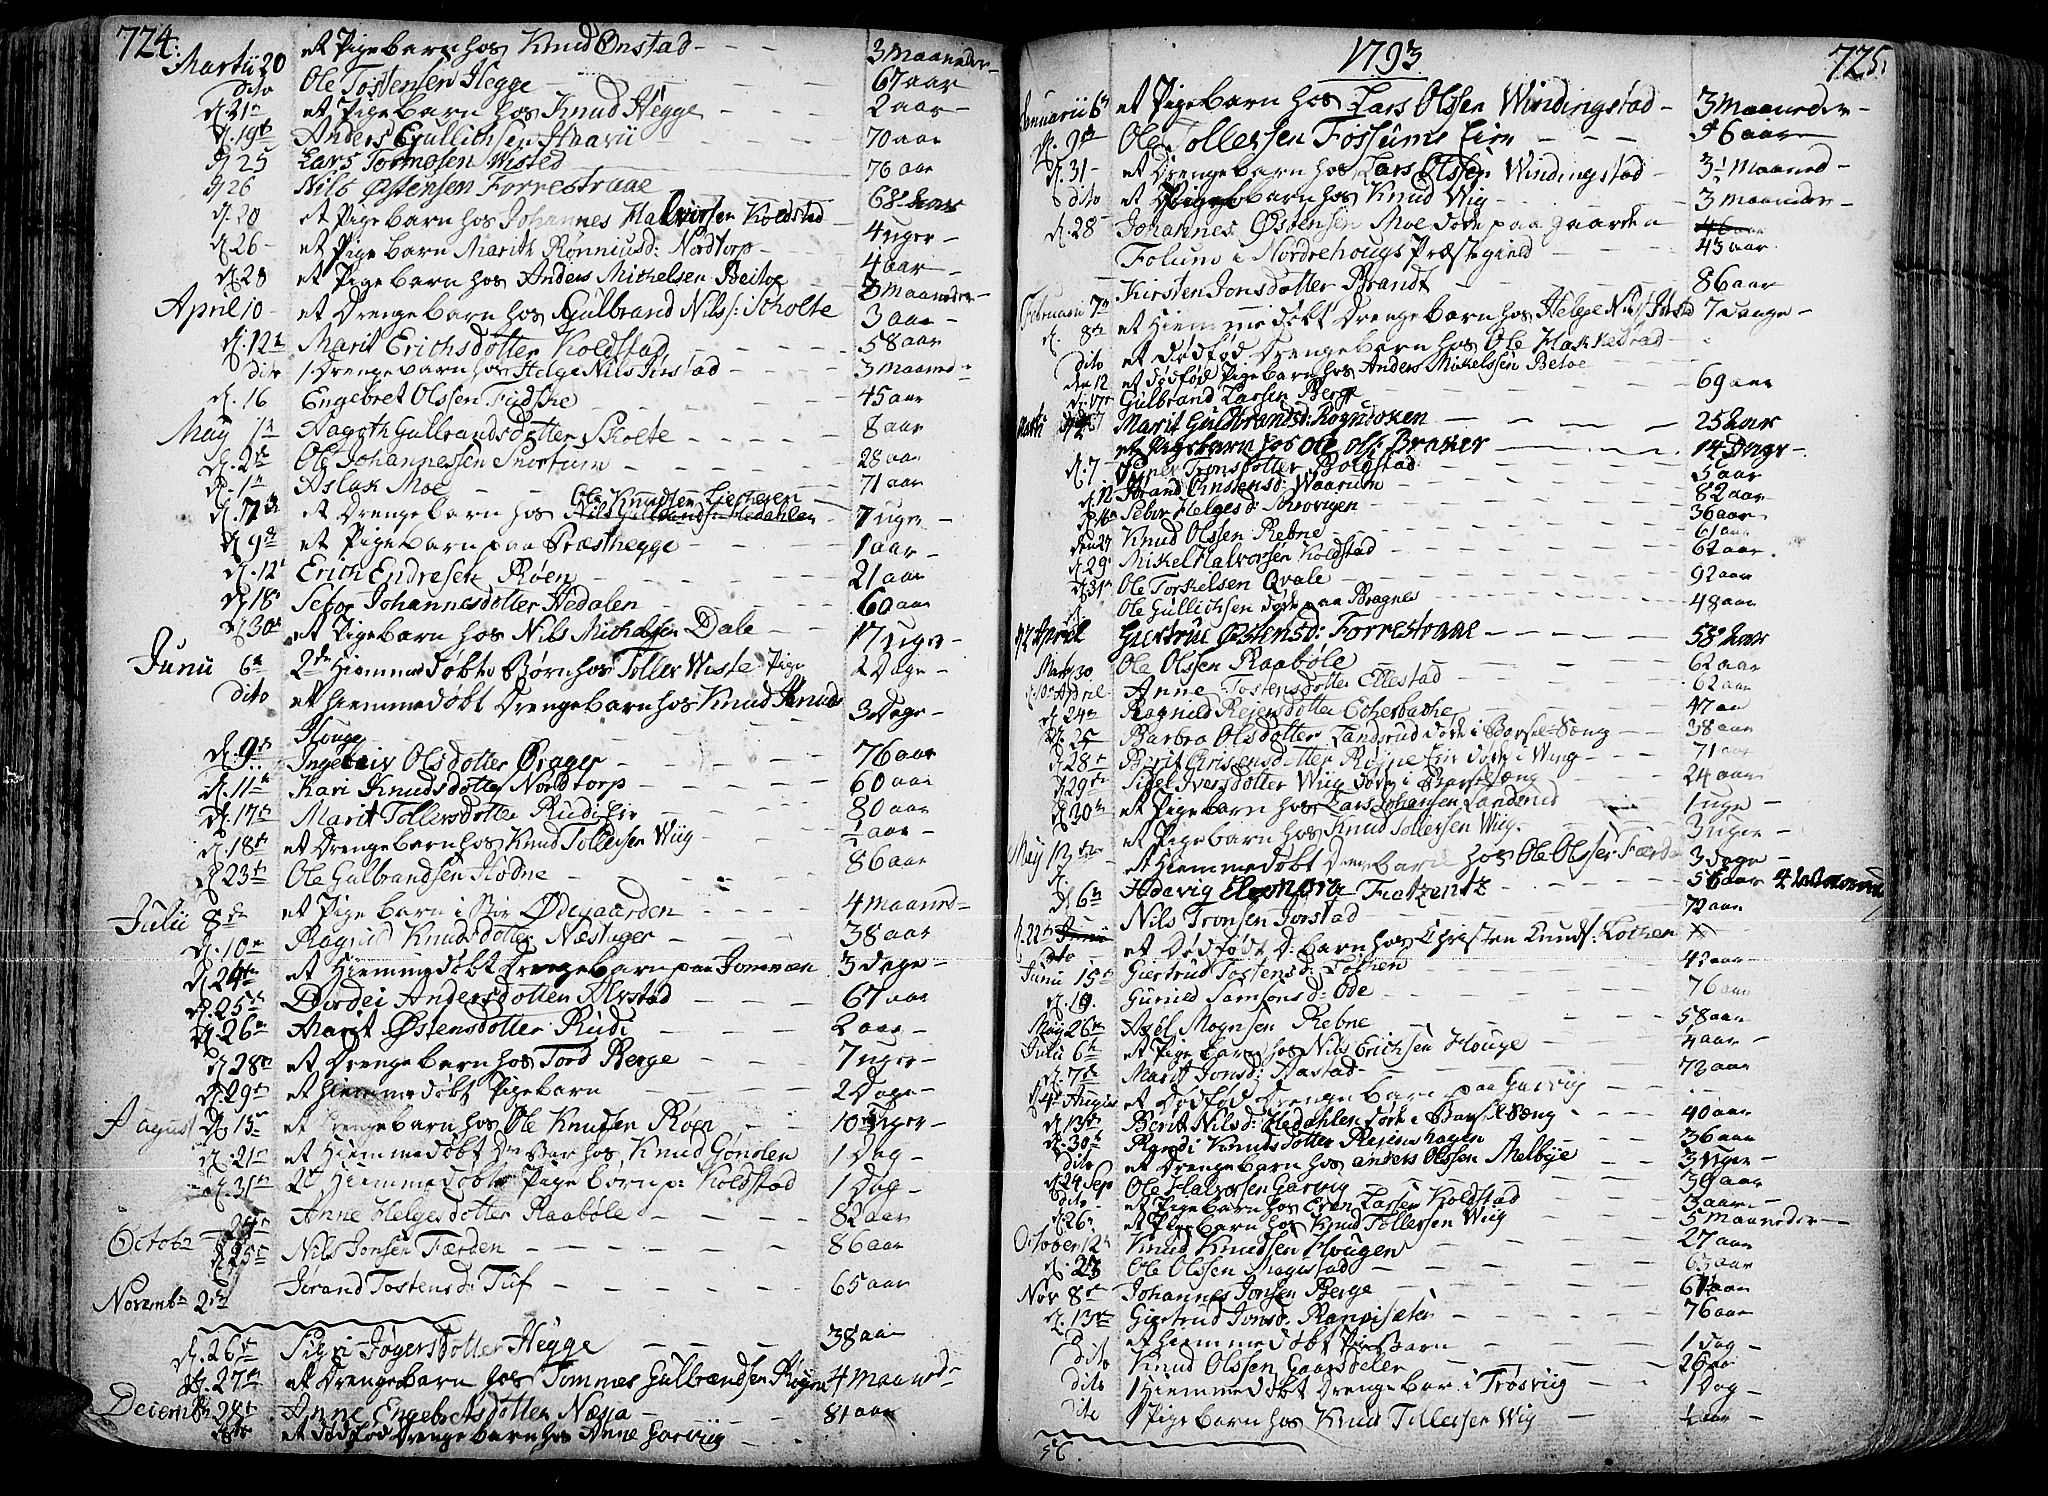 724.
Martii 20 et Pigebarn hos Knud Onstad - 3 Maaneder -
dito Ole Tostensen Hegge 67 aar
d. 21de et Pigebarn hos Knud Hegge 2 aar -
d. 19de Anders Gullichsen 70 aar
d 25 Lars Tormosen Wisted 76 aar
d 26 Nils Østensen Forrestraae 68 aar
d. 20 et Pigebarn hos Johannes Halvorsen Koldstad 4 uger -
d. 26 - et Pigebarn Marith Nordtorp - 4 aar -
d. 28 et Pigebarn hos Anders Michelsen Beitoe Maaneder -
April 10 - et Drengebarn hos Gulbrand Nilss: Skolte 3 aar -
d. 12te Marit Erichsdotter Koldstad 58 aar
dito 1 Drengebarn hos Helge Nils: 3 Maaned -
d. 16 Engebret Olssen Fudske 45 aar
May 1te Gulbrandsdotter Skolte 8 aar
d. 2de Ole Johannessen 28 aar
d. 1te Aslak Moe 71 aar
Ole Knudsen
d. 7de et Drengebarn hos Nils Gulbrandsen Hedahlen 7 uger -
d 9de et Pigebarn paa Præsthegge 1 aar -
d. 12te Erich Endresen Røen 21 aar
d 18de Johannesdotter Hedalen 60 aar
d 30te et Pigebarn hos Nils Michelsen Dale 17 uger -
Junii 6te 2de Hiemmedøbte Børn hos Toller Wiste Pige 2 Dage -
dito et hiemmedøbt Drengebarn hos Knud Knuds 3 Dage -
Houge
d. 9de Ingebor Olsdotter 76 aar
d. 11te Kari Knudsdotter Nordtorp 60 aar
d. 17de Marit Tollersdotter Rudi Eie 80 aar
d. 18de et Drengebarn hos Knud Tollersen Wiig ½ aar -
d 23de Ole Gulbrandsen Hodne 86 aar
Julii 8de et Pigebarn i Ødegaarden 4 Maaned -
d. 10de Ragnild Knudsdotter Næstegger 38 aar
d 24de et Hiemmedøbt Drengebarn paa 3 Dage -
d. 25de Dordei Andersdotter Alfstad 67 aar
d. 26de Marit Østensdotter Rudi 2 aar -
d 28de et Drengebarn hos Tord Berge 7 uger -
d. 29de et hiemmedøbt Pigebarn 2 Dage -
August d 15de et Drengebarn hos Ole Knudsen Røen 10 uger -
d. 21de et Hiemmedøbt hos Knud 1 Dag -
d. 31te 2de Hiemmedøbte Pigebørn p: Koldstad 1 Dag -
Anne Helgesdotter Raabøle 82 aar
Octobr d 25de Nils Jonsen Færden 86 aar
Novembr 2de Jørand Tostensd: Tuf 65 aar
d. 26de Sigri Jøgersdotter Hegge 38 aar
d. 27de et Drengebarn hos Tommes Gulbrandsen 4 Maaned -
Decembr Anne Engebretsdotter Næsia 81 aar
dito et dødfød Drengebarn hos Anne Garviig
1793
725.
Januarii 6te et Pigebarn hos Lars Olssen Windingstad - 3 Maaneder -
d. 9de Ole Tollersen Fossums Eie 96 aar
d. 31 - et Drengebarn hos Lars Olssen Windingstad 3½ Maaned -
dito et Pigebarn hos Knud Wiig 3 Maaneder -
d. 28 Johannes Østensen Moe døde paa gaarden
Folum i Nordrehougs Præstegield 43 aar
Kirsten Jonsdotter Brandt 86 aar
Februarii 7de et Hiemmedøbt Drengebarn hos Helge Nils: 7 uger -
d. 8de et Dødfød Drengebarn hos Ole Hakkestad -
dito et dødfød Pigebarn hos Anders Mikelssen Betoe
den 12 Gulbrand Larsen Berge 69 aar
Marit Gulbrandsd: Rogndoken 25 aar
et Pigebarn hos Ole Ols: 14 Dage -
d. 7 - Tronsdotter Boldstad 5 aar
d. 12 Jørand Christensd: Waarum 82 aar
d 16 Helgesd: 36 aar
den 27 Knud Olssen Rebne 61 aar
d. 29 Mikel Halvorsen Koldstad 62 aar
d 31te Ole Torkelsen Qvale 92 aar
Ole Gullichsen døde paa Bragnes 48 aar
17 April Giertrue Østensd: Forrestraae 58 aar
Marty 30 Ole Olssen Raabøle 62 aar
d. 10de April Anne Tostensdotter Ellestad 62 aar
d 24de Ragnild 47 aar
d. 25 Barbro Olsdotter Landsrud døde i Barsel-Seng 38 aar
d 28de Berit Christensdotter Eie døde i Wang 71 aar
d 29de Sigel Iversdotter Wiig døde i Barselseng 24 aar
d 30te et Pigebarn hos Lars Johansen Landerud 1 uge -
et Pigebarn hos Knud Tollersen Wiig 3 uger -
May 13de et Hiemmedøbt Drengebarn hos Ole Olssen Færden 3 Dage -
d 6te Hedvig Elconora 56 aar
Nils Tronsen Jorstad 72 aar
d. 22de et Dødfødt D: barn hos Christen Knuds: Lothen
Junii 15de Giertrud Tostensd: Lothen 42 aar
d. 19. Gunild Samsonsd: Ode 76 aar
May 26de Axel Mognsen Rebne 58 aar
Julii 6te et Pigebarn hos Nils Erichsen Houge 4 aar -
d. 7de Marit Jonsd: Aastad - 72 aar
d 4de Augus et Dødfød Drengebarn paa Garviig
d 13de Berit Nilsd: Hedahlen døde i Barsel Seng 40 aar
d. 30te Randi Knudsdotter 36 aar
dito et Drengebarn hos Anders Olssen Melbye 3 uger -
d 24 Sep Ole Halvorsen Garvig 30 aar
dito et Pigebarn hos Even Larsen Koldstad 3 aar -
d. 26 et Pigebarn hos Knud Tollersen Wiig 5 Maaneder -
October 12te Knud Knudsen Hougen 27 aar
d. 23 Ole Olssen Magistad 65 aar
Nov 8de Johannes Jonsen Berge aar
d. 13de Giertrud Jonsd: 76 aar
dito et Hiemmedøbt PigeBarn 1 Dag -
dito Knud Olssen Gaarsdelen 26 aar
dito 1 Hiemmedøbt Drengebarn i Trøsviig 1 Dag -
dito 1 Pigebarn hos Knud Tollersen Wiig ½ aar